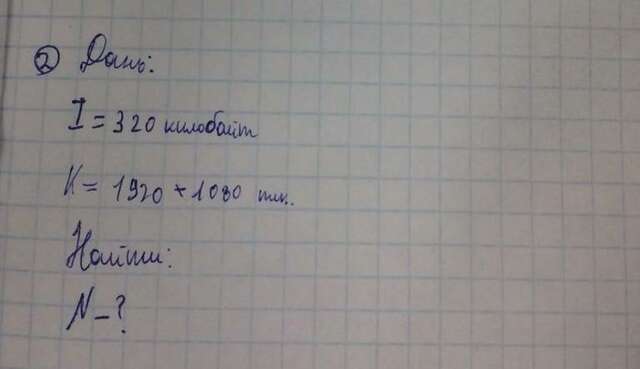 ② Дань:
I = 320 килобайт
K = 1920 * 1080 пик.
Найти:
N - ?